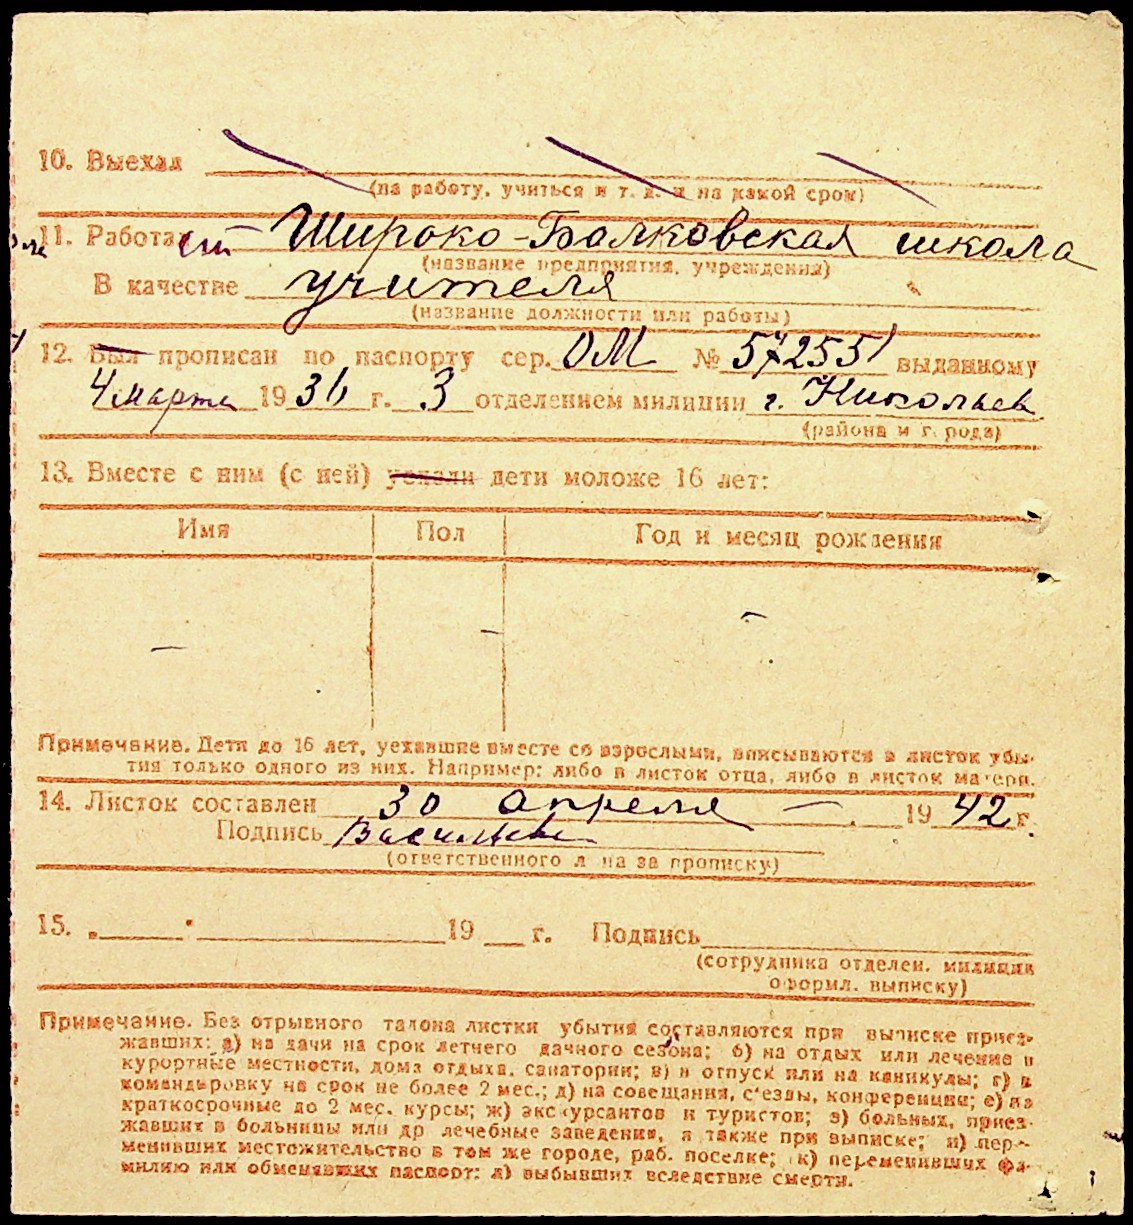 10. Выехал
(на работу, учиться и т. д. и на какой срок)
11. Работает Широко-Балковская школа
(название предприятия, учреждения)
В качестве учителя
(название должности или работы)
12. Был прописан по паспорту сер. ОМ № 572551 выданному
4 марта 1936 г. 3 отделением милиции г. Николаев
(района и города)
13. Вместе с ним (с ней) уехали дети моложе 16 лет:
Имя Пол Год и месяц рождения
— — —
Примечание. Дети до 16 лет, уехавшие вместе со взрослыми, вписываются в листок убы-
тия только одного из них. Например: либо в листок отца, либо в листок матери.
14. Листок составлен 30 апреля — 1942 г.
Подпись
(ответственного лица за прописку)
15. 19 г. Подпись
(сотрудника отделен. милиции
оформл. выписку)
Примечание. Без отрывного талона листки убытия составляются при выписке приез-
жавших: а) на дачи на срок летнего дачного сезона; б) на отдых или лечение в
курортные местности, дома отдыха, санатории; в) в отпуск или на каникулы; г) в
командировку на срок не более 2 мес.; д) на совещания, с'езды, конференции; е) на
краткосрочные до 2 мес. курсы; ж) экскурсантов и туристов; з) больных, приез-
жавших в больницы или др лечебные заведения, а также при выписке; и) пер-
менивших местожительство в том же городе, раб. поселке; к) переменивших фа-
милию или обменявших паспорт: л) выбывших вследствие смерти.